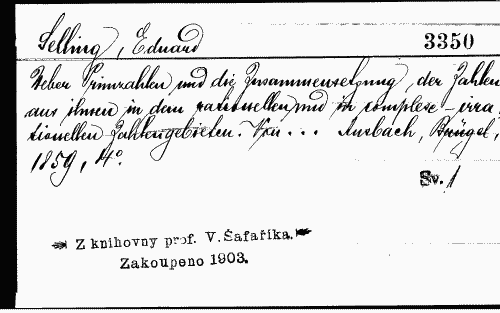 Selling, Eduard
3350
Ueber Primzahlen und die Zusammensetzung der Zahlen
aus ihnen in den rationellen und in complexe-irra-
tionellen Zahlengebieten. ... Ansbach, Brügel,
1859, 4°.
Sv. 1
Z knihovny prof. V. Šafaříka.
Zakoupeno 1903.